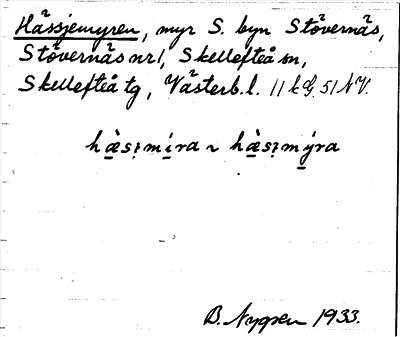 Hässjemyren, myr S. byn Stövernäs,
Stövernäs nr 1, Skellefteå sn,
Skellefteå tg, Västerb. l. 11 k G. 51 NV.
hæ̀sɩmira ~ hæ̀sɩmýra
B. Nygren 1933.